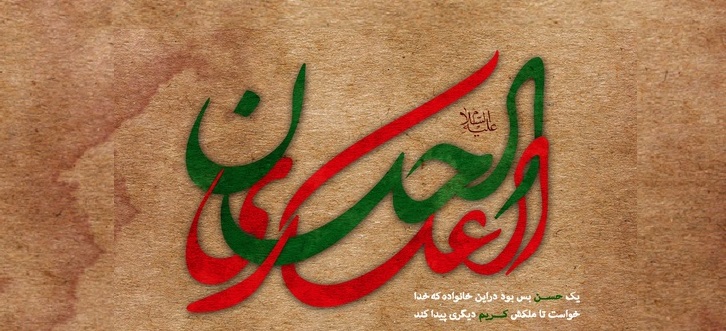 الحسن
العسکری
علیه السلام
یک حسن بس بود دراین خانواده که خدا
خواست تا ملکش کریم دیگری پیدا کند